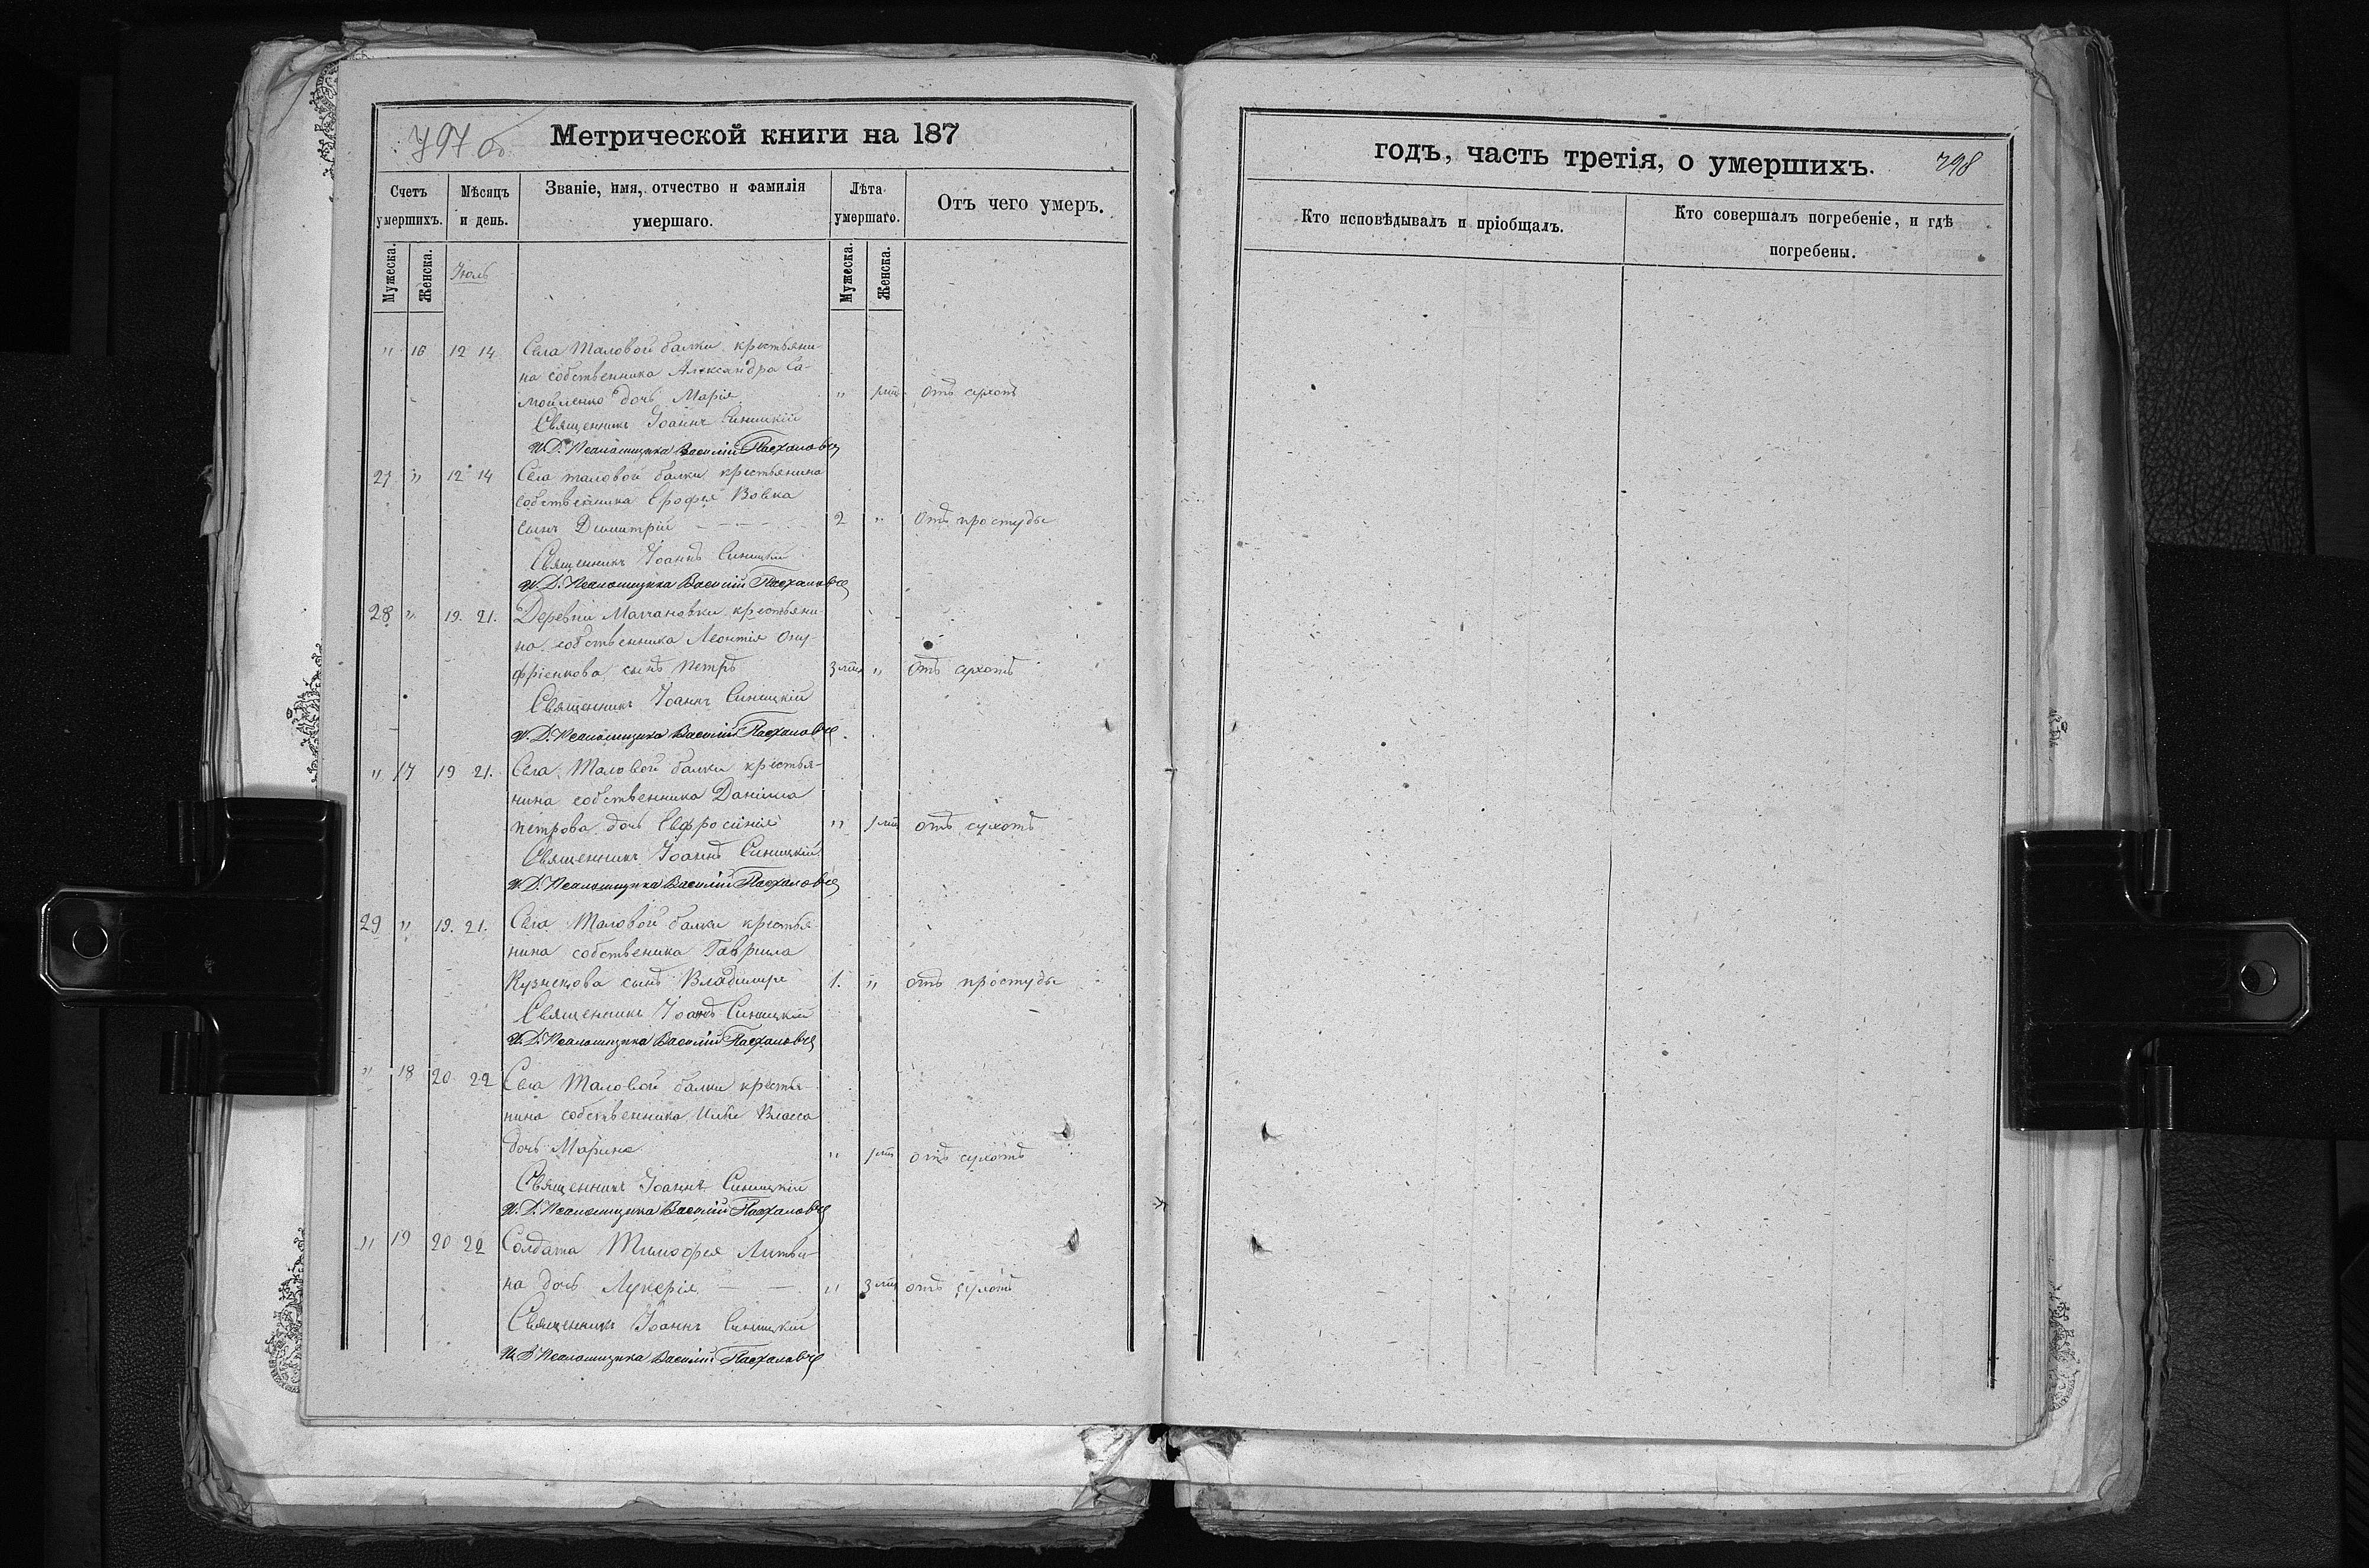 797 об
Метрической книги на 187
Счетъ умершихъ.
Мѣсяцъ и день.
Званіе, имя, отчество и фамилія умершаго.
Лѣта умершаго.
Отъ чего умеръ.
Мужеска.
Женска.
Июль
Мужеска.
Женска.
" 16 12 14 Села Таловой балки крестьяни-
на собственника Александра Са-
мойленко дочь Марія " отъ сухотъ
Священникъ Іоаннъ Синицкій
И. Д. Псаломщика Василій Пасхаловъ
27 " 12 14 Села таловой балки крестьянина
собственника Ерофея Вовка
сынъ Димитрій 2 " Отъ простуды
Священникъ Іоаннъ Синицкій
И. Д. Псаломщика Василій Пасхаловъ
28 " 19. 21. Деревни Малчановки крестьяни-
на собственника Леонтія Ону-
фріенкова сынъ Петръ 3 " отъ сухотъ
Священникъ Іоаннъ Синицкій
И. Д. Псаломщика Василій Пасхаловъ
" 17 19 21. Села Таловой балки крестья-
нина собственника Даніила
Петрова дочь Евфросинія " отъ сухотъ
Священникъ Іоаннъ Синицкій
И. Д. Псаломщика Василій Пасхаловъ
29 " 19. 21. Села Таловой балки крестья-
нина собственика Гаврила
Кузнецова сынъ Владимиръ 1. " отъ простуды
Священникъ Іоаннъ Синицкій
И. Д. Псаломщика Василій Пасхаловъ
" 18 20 22 Села Таловой балки крестья-
нина собственника Ильи Власа
дочь Марина " отъ сухотъ
Священникъ Іоаннъ Синицкій
И. Д. Псаломщика Василій Пасхаловъ
" 19 20 22 Солдата Тимофея Литви-
на дочь Лукерія " 3 отъ сухотъ
Священникъ Іоаннъ Синицкій
И. Д. Псаломщика Василій Пасхаловъ
годъ, часть третія, о умершихъ.
798
Кто исповѣдывалъ и пріобщалъ.
Кто совершалъ погребеніе, и гдѣ погребены.